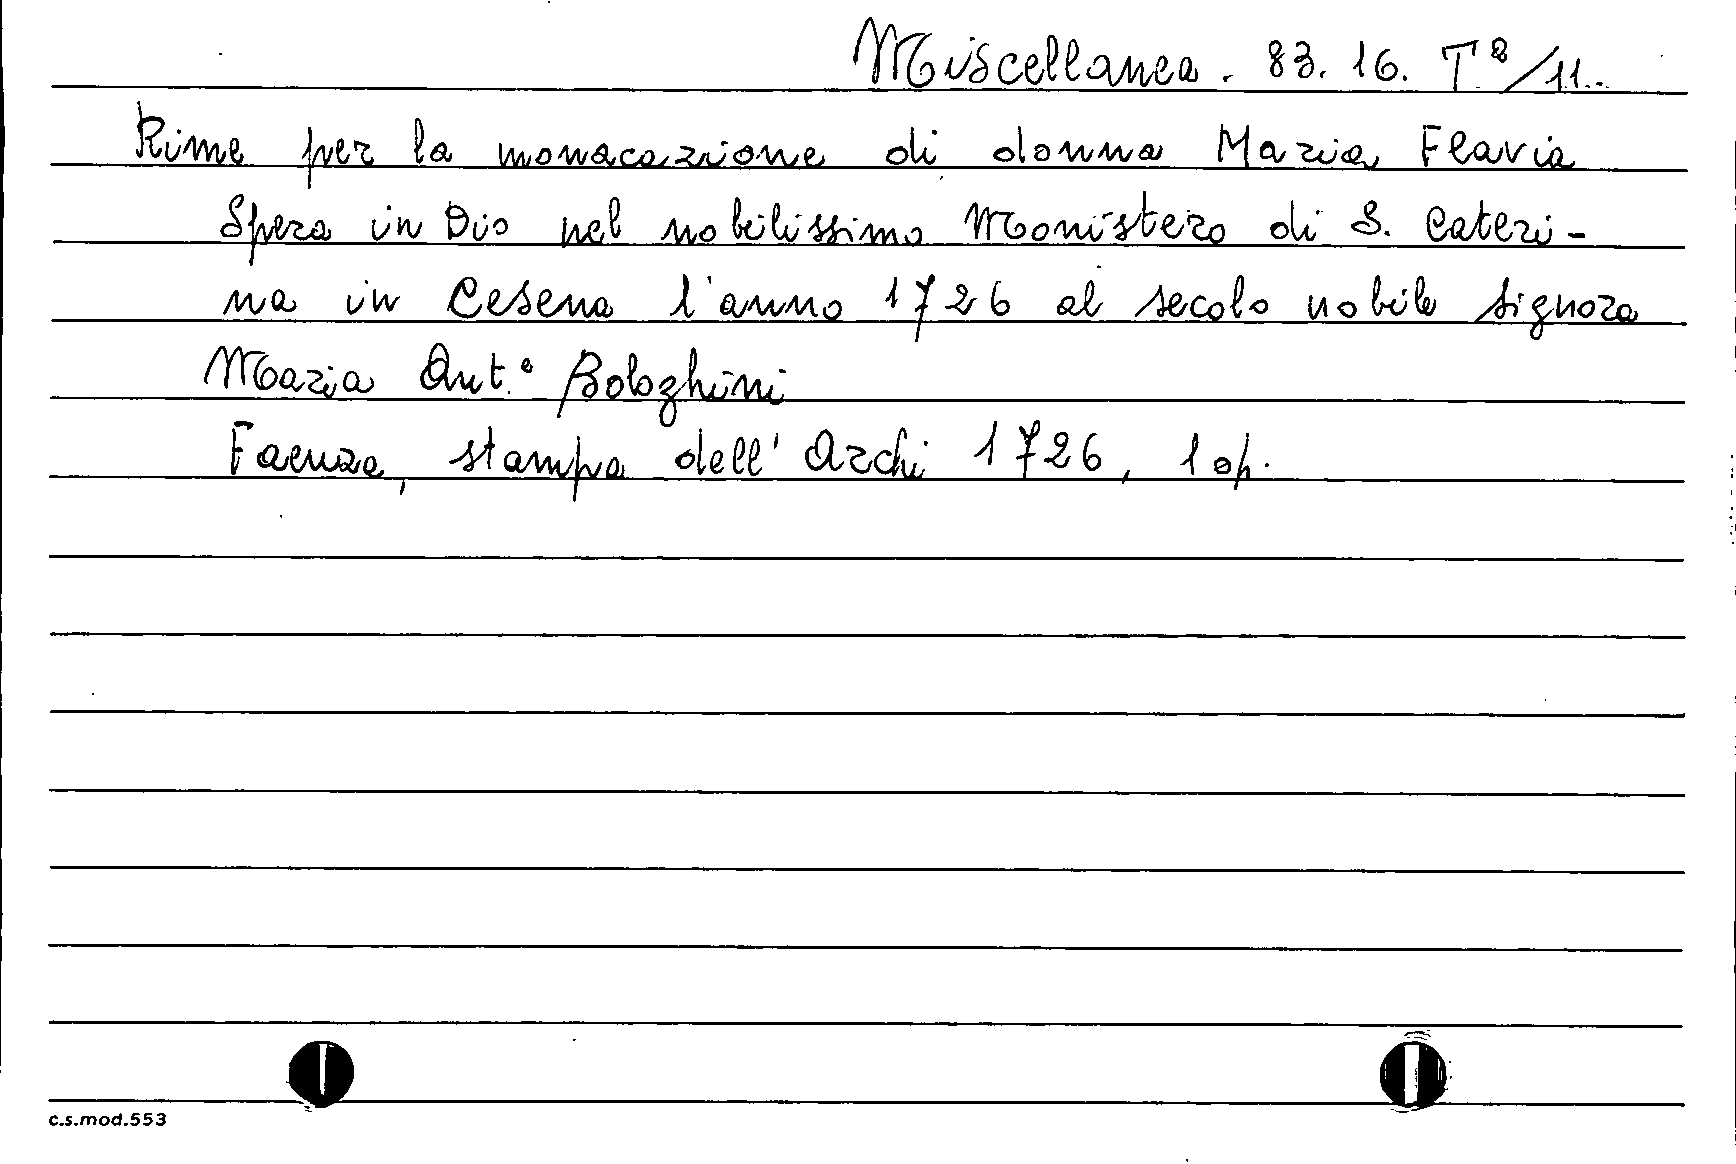 Miscellanea. 83. 16. Tª/11..
Rime per la monacazione di donna Maria Flavia
Spera in Dio nel nobilissimo Monistero di S. Cateri-
na in Cesena l'anno 1726 al secolo nobile signora
Maria Ant.ª Borghini
Faenza, stampa dell'Archi 1726, 1 op.
c.s.mod.553